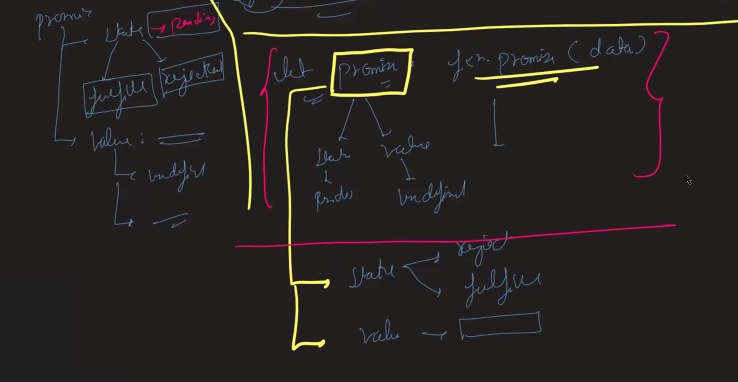 promise
State → Pending
fulfill rejected
value :
undefined
let promise fxn. promise ( data )
State value
undefined
reject
State
fulfill
value →